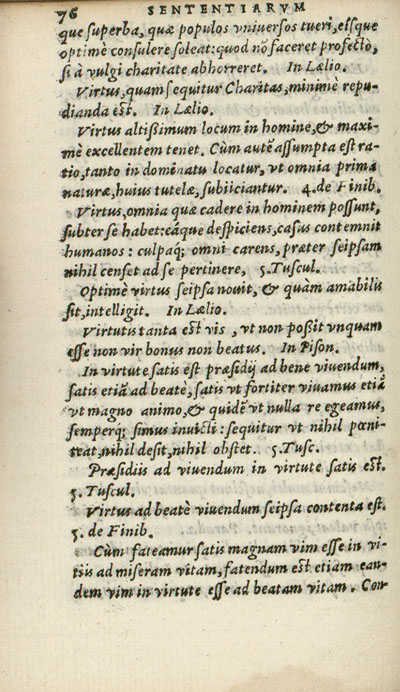 76 SENTENTIARVM
que superba, quæ populos vniuersos tueri, eisque
optimè consulere soleat: quod nõ faceret profectò,
si à vulgi charitate abhorreret. In Lælio.
Virtus, quam sequitur Charitas, minimè repu-
dianda est. In Lælio.
Virtus altissimum locum in homine, & maxi-
mè excellentem tenet. Cùm autẽ assumpta est ra-
tio, tanto in dominatu locatur, vt omnia prima
naturæ, huius tutelæ, subiiciantur. 4. de Finib.
Virtus, omnia quæ cadere in hominem possunt,
subter se habet: eáque despiciens, casus contemnit
humanos: culpaq; omni carens, præter seipsam
nihil censet ad se pertinere, 5. Tuscul.
Optimè virtus seipsa nouit, & quàm amabilis
sit, intelligit. In Lælio.
Virtutis tanta est vis, vt non possit vnquam
esse non vir bonus non beatus. In Pison.
In virtute satis est præsidij ad bene viuendum,
satis etiã ad beatè, satis vt fortiter viuamus etiã
vt magno animo, & quidẽ vt nulla re egeamus,
semperq; simus inuicti: sequitur vt nihil pœni-
teat, nihil desit, nihil obstet. 5. Tusc.
Præsidiis ad viuendum in virtute satis est.
5. Tuscul.
Virtus ad beatè viuendum seipsa contenta est.
5. de Finib.
Cùm fateamur satis magnam vim esse in vi-
tiis ad miseram vitam, fatendum est etiam ean-
dem vim in virtute esse ad beatam vitam. Con-